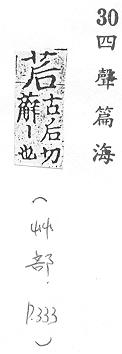 30四聲篇海
茩古后切
薢丨也
(艸部. P.333)